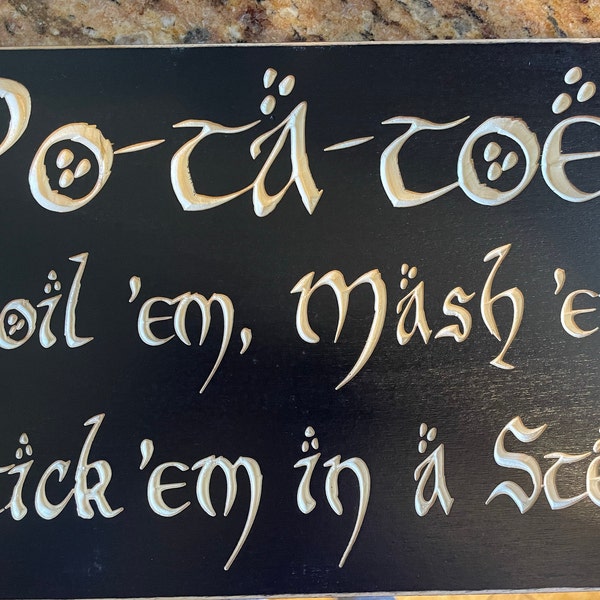 Po-ta-toe
oil 'em, Mash 'e
tick 'em in a Ste